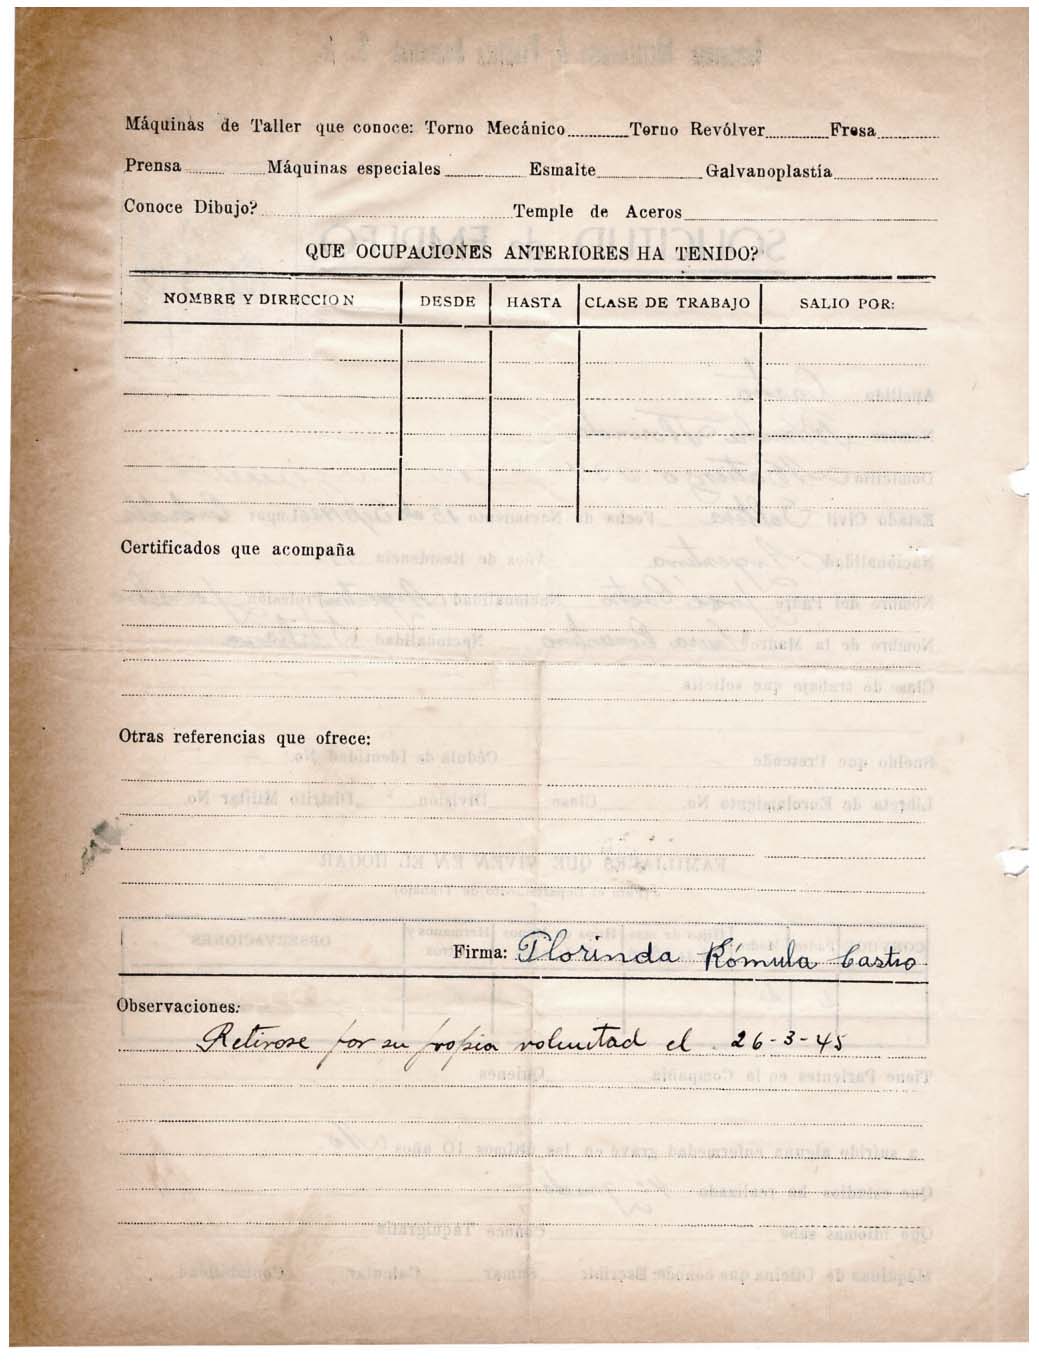 Máquinas de Taller que conoce: Torno Mecánico Torno Revólver Fresa
Prensa Máquinas especiales Esmalte Galvanoplastía
Conoce Dibujo? Temple de Aceros
QUE OCUPACIONES ANTERIORES HA TENIDO?
NOMBRE Y DIRECCION DESDE HASTA CLASE DE TRABAJO SALIO POR:
Certificados que acompaña
Otras referencias que ofrece:
Firma: Florinda Rómula Castro
Observaciones:
Retirose por su propia voluntad el 26-3-45